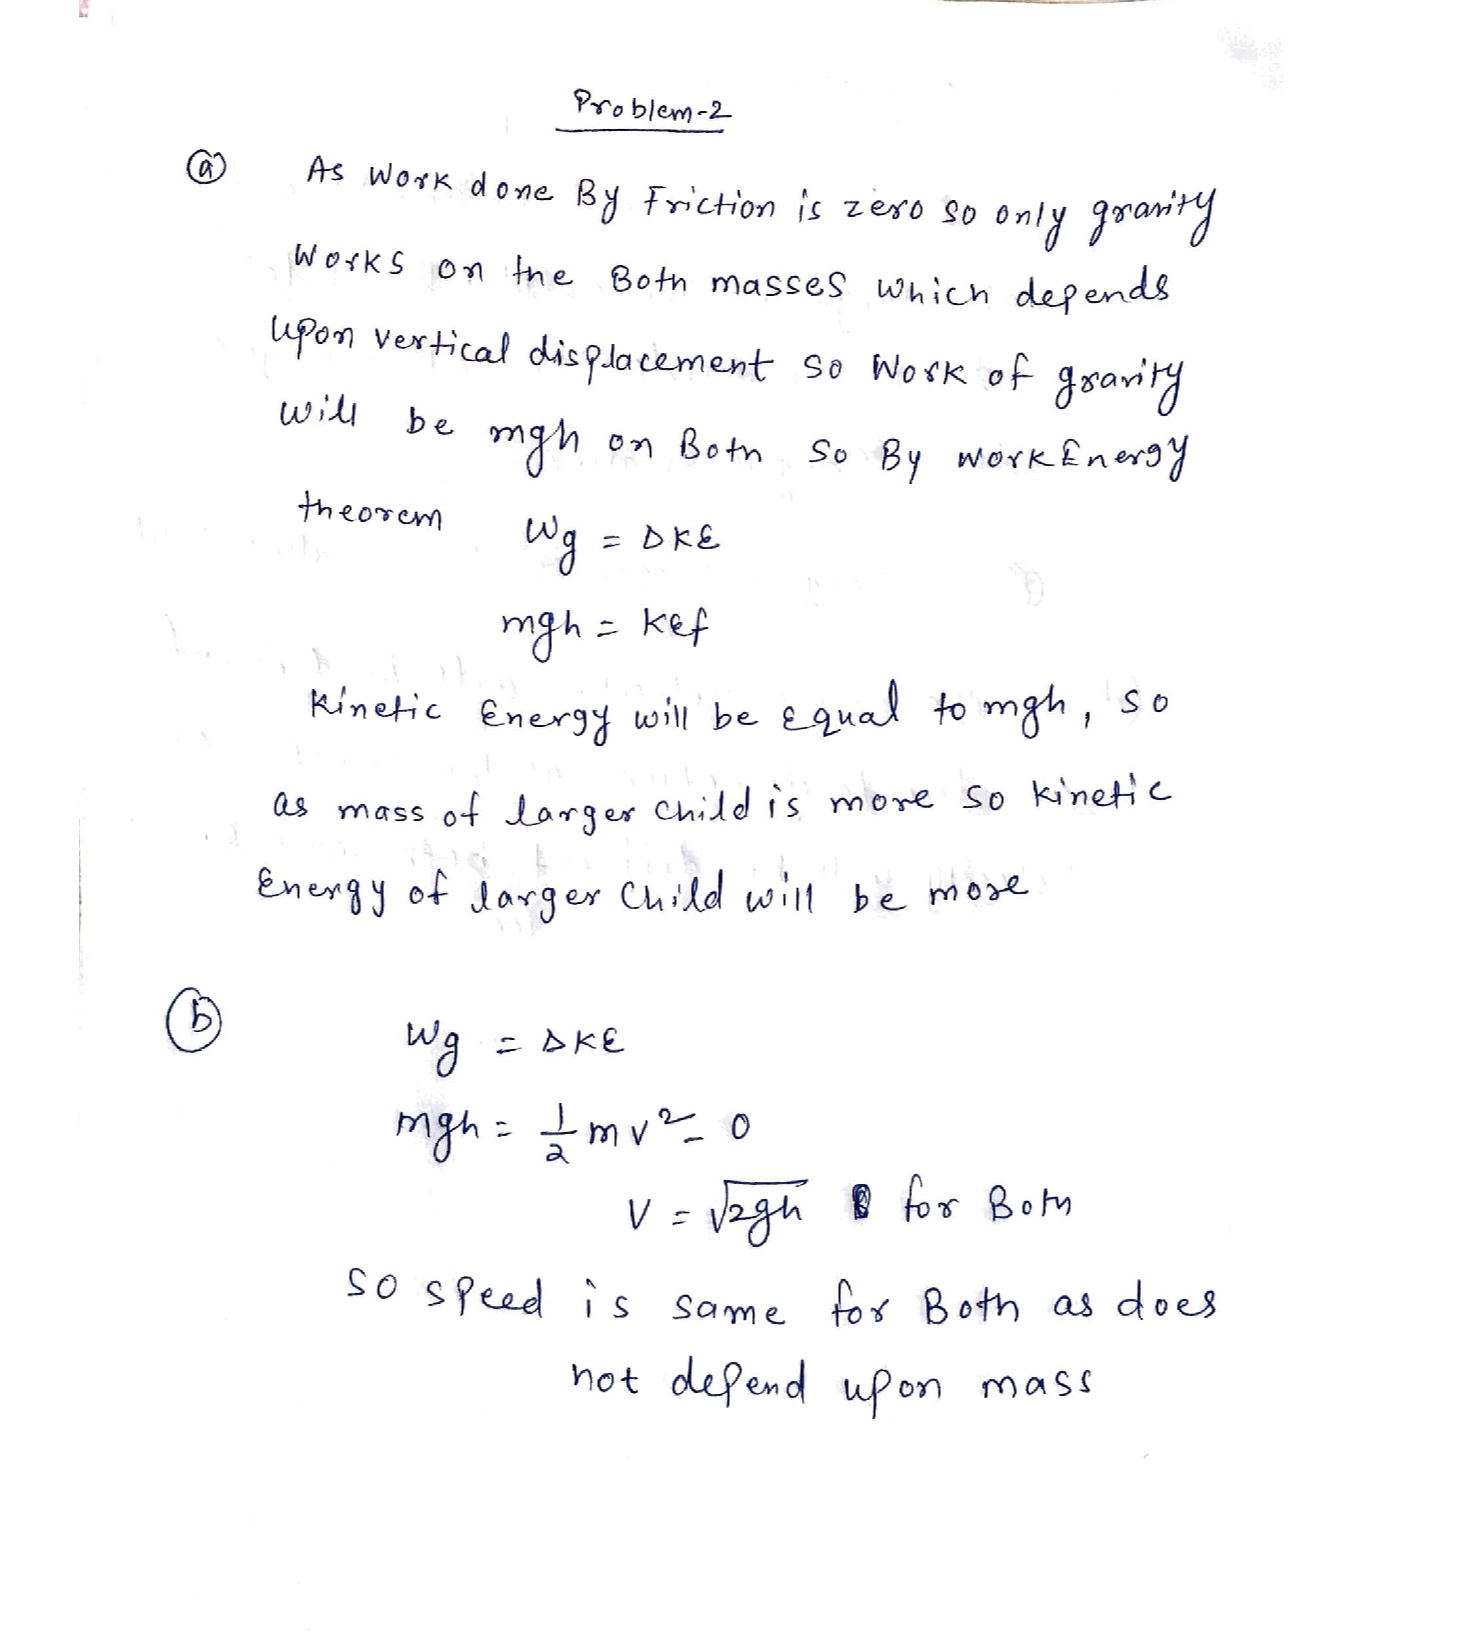 Problem-2
(a) As Work done By Friction is zero so only gravity
Works on the Both masses which depends
upon vertical displacement so Work of gravity
will be mgh on Both so By work Energy
theorem Wg = ΔKE
mgh = KEf
Kinetic Energy will be Equal to mgh, so
as mass of larger child is more so kinetic
Energy of larger Child will be more
(b) Wg = ΔKE
mgh = 1/2 mv² - 0
V = √2gh for Both
so speed is same for Both as does
not depend upon mass